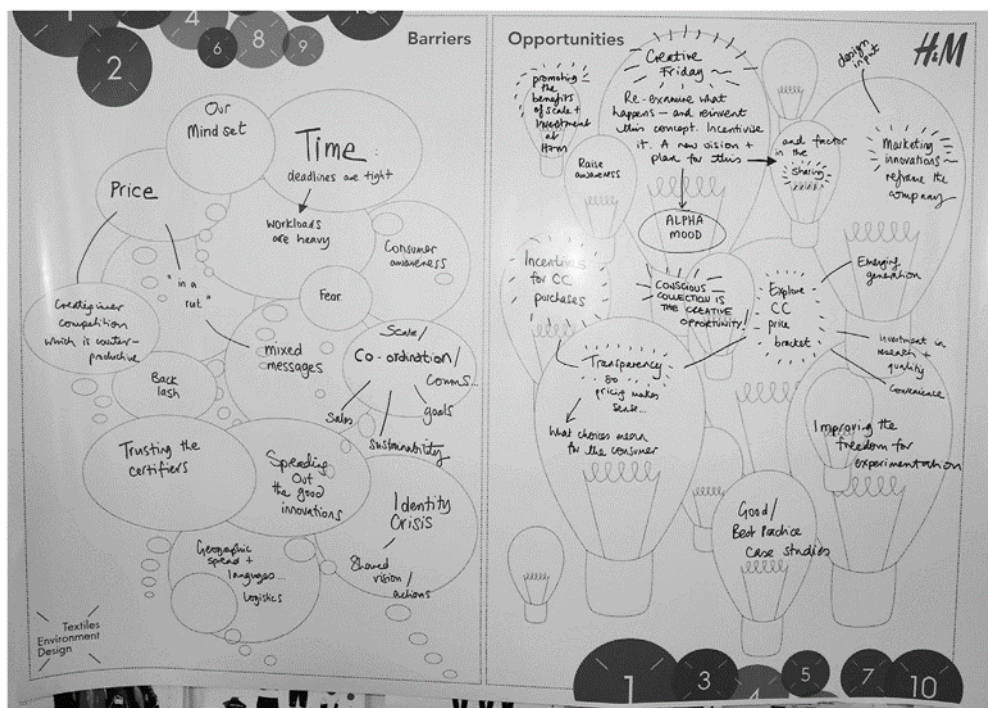 Barriers
2
4
6
8
9
Our
Mind set
Time:
deadlines are tight
workloads
are heavy
Price
"in a
rut"
Consumer
awareness
Fear.
Creating inner
competition
which is counter-
productive
mixed
messages
Scale/
Co-ordination/
Comms...
Sales
goals
Sustainability
Back
lash
Trusting the
certifiers
Spreading
Out
the good
innovations
Identity
Crisis
Shared
vision/
actions
Geographic
spread +
languages...
logistics
Textiles
Environment
Design
Opportunities
H&M
promoting
the
benefits
of scale +
investment
at
H+M
Creative
Friday
Re-examine what
happens – and reinvent
this concept. Incentivise
it. A new vision +
plan for this
and factor
in the
sharing
design
input
Marketing
innovations
reframe the
company
Raise
awareness
ALPHA
MOOD
Incentives
for CC
purchases
CONSCIOUS
COLLECTION IS
THE CREATIVE
OPPORTUNITY!
Explore
CC
price
bracket
Emerging
generation
investment in
research +
quality
Convenience
Transparency
so
pricing makes
sense...
What choices mean
for the consumer
Improving the
freedom for
experimentation
Good/
Best Practice
case studies
1
3
4
5
7
10